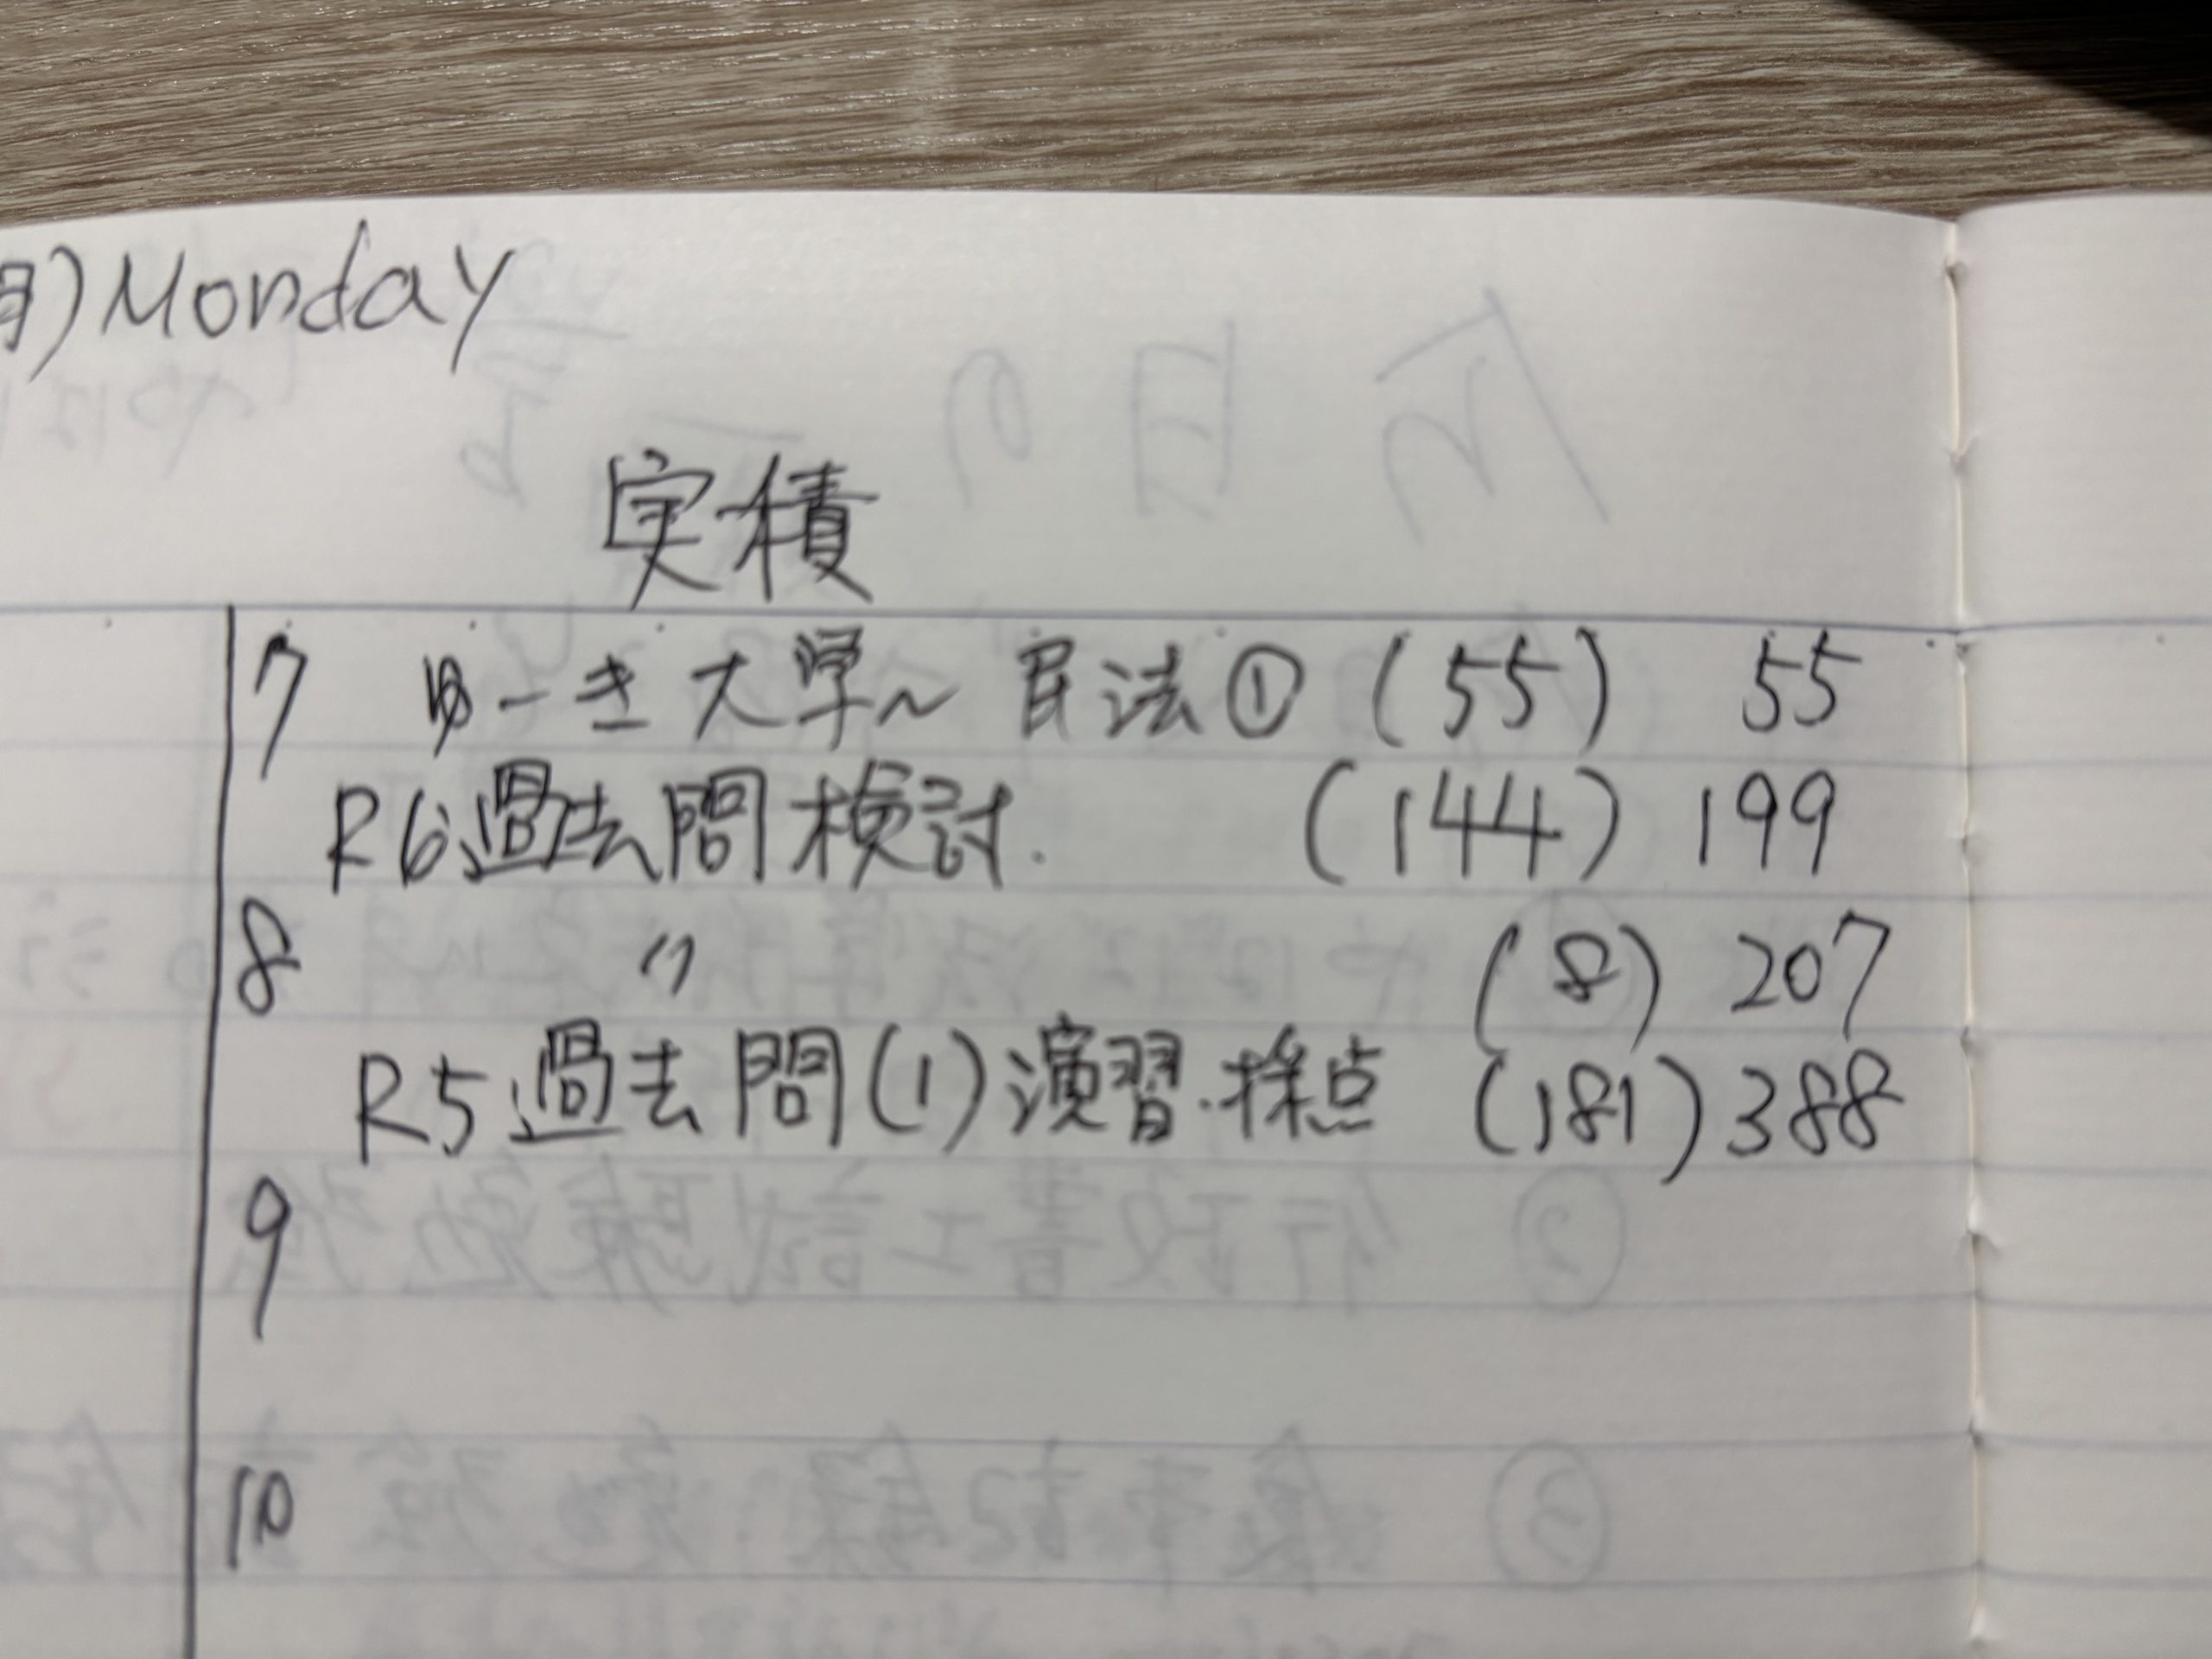 月) Monday
実積
7 ゆーき大学～ 民法① (55) 55
R6過去問検討. (144) 199
8 〃 (8) 207
R5過去問(1)演習・採点 (181) 388
9
10